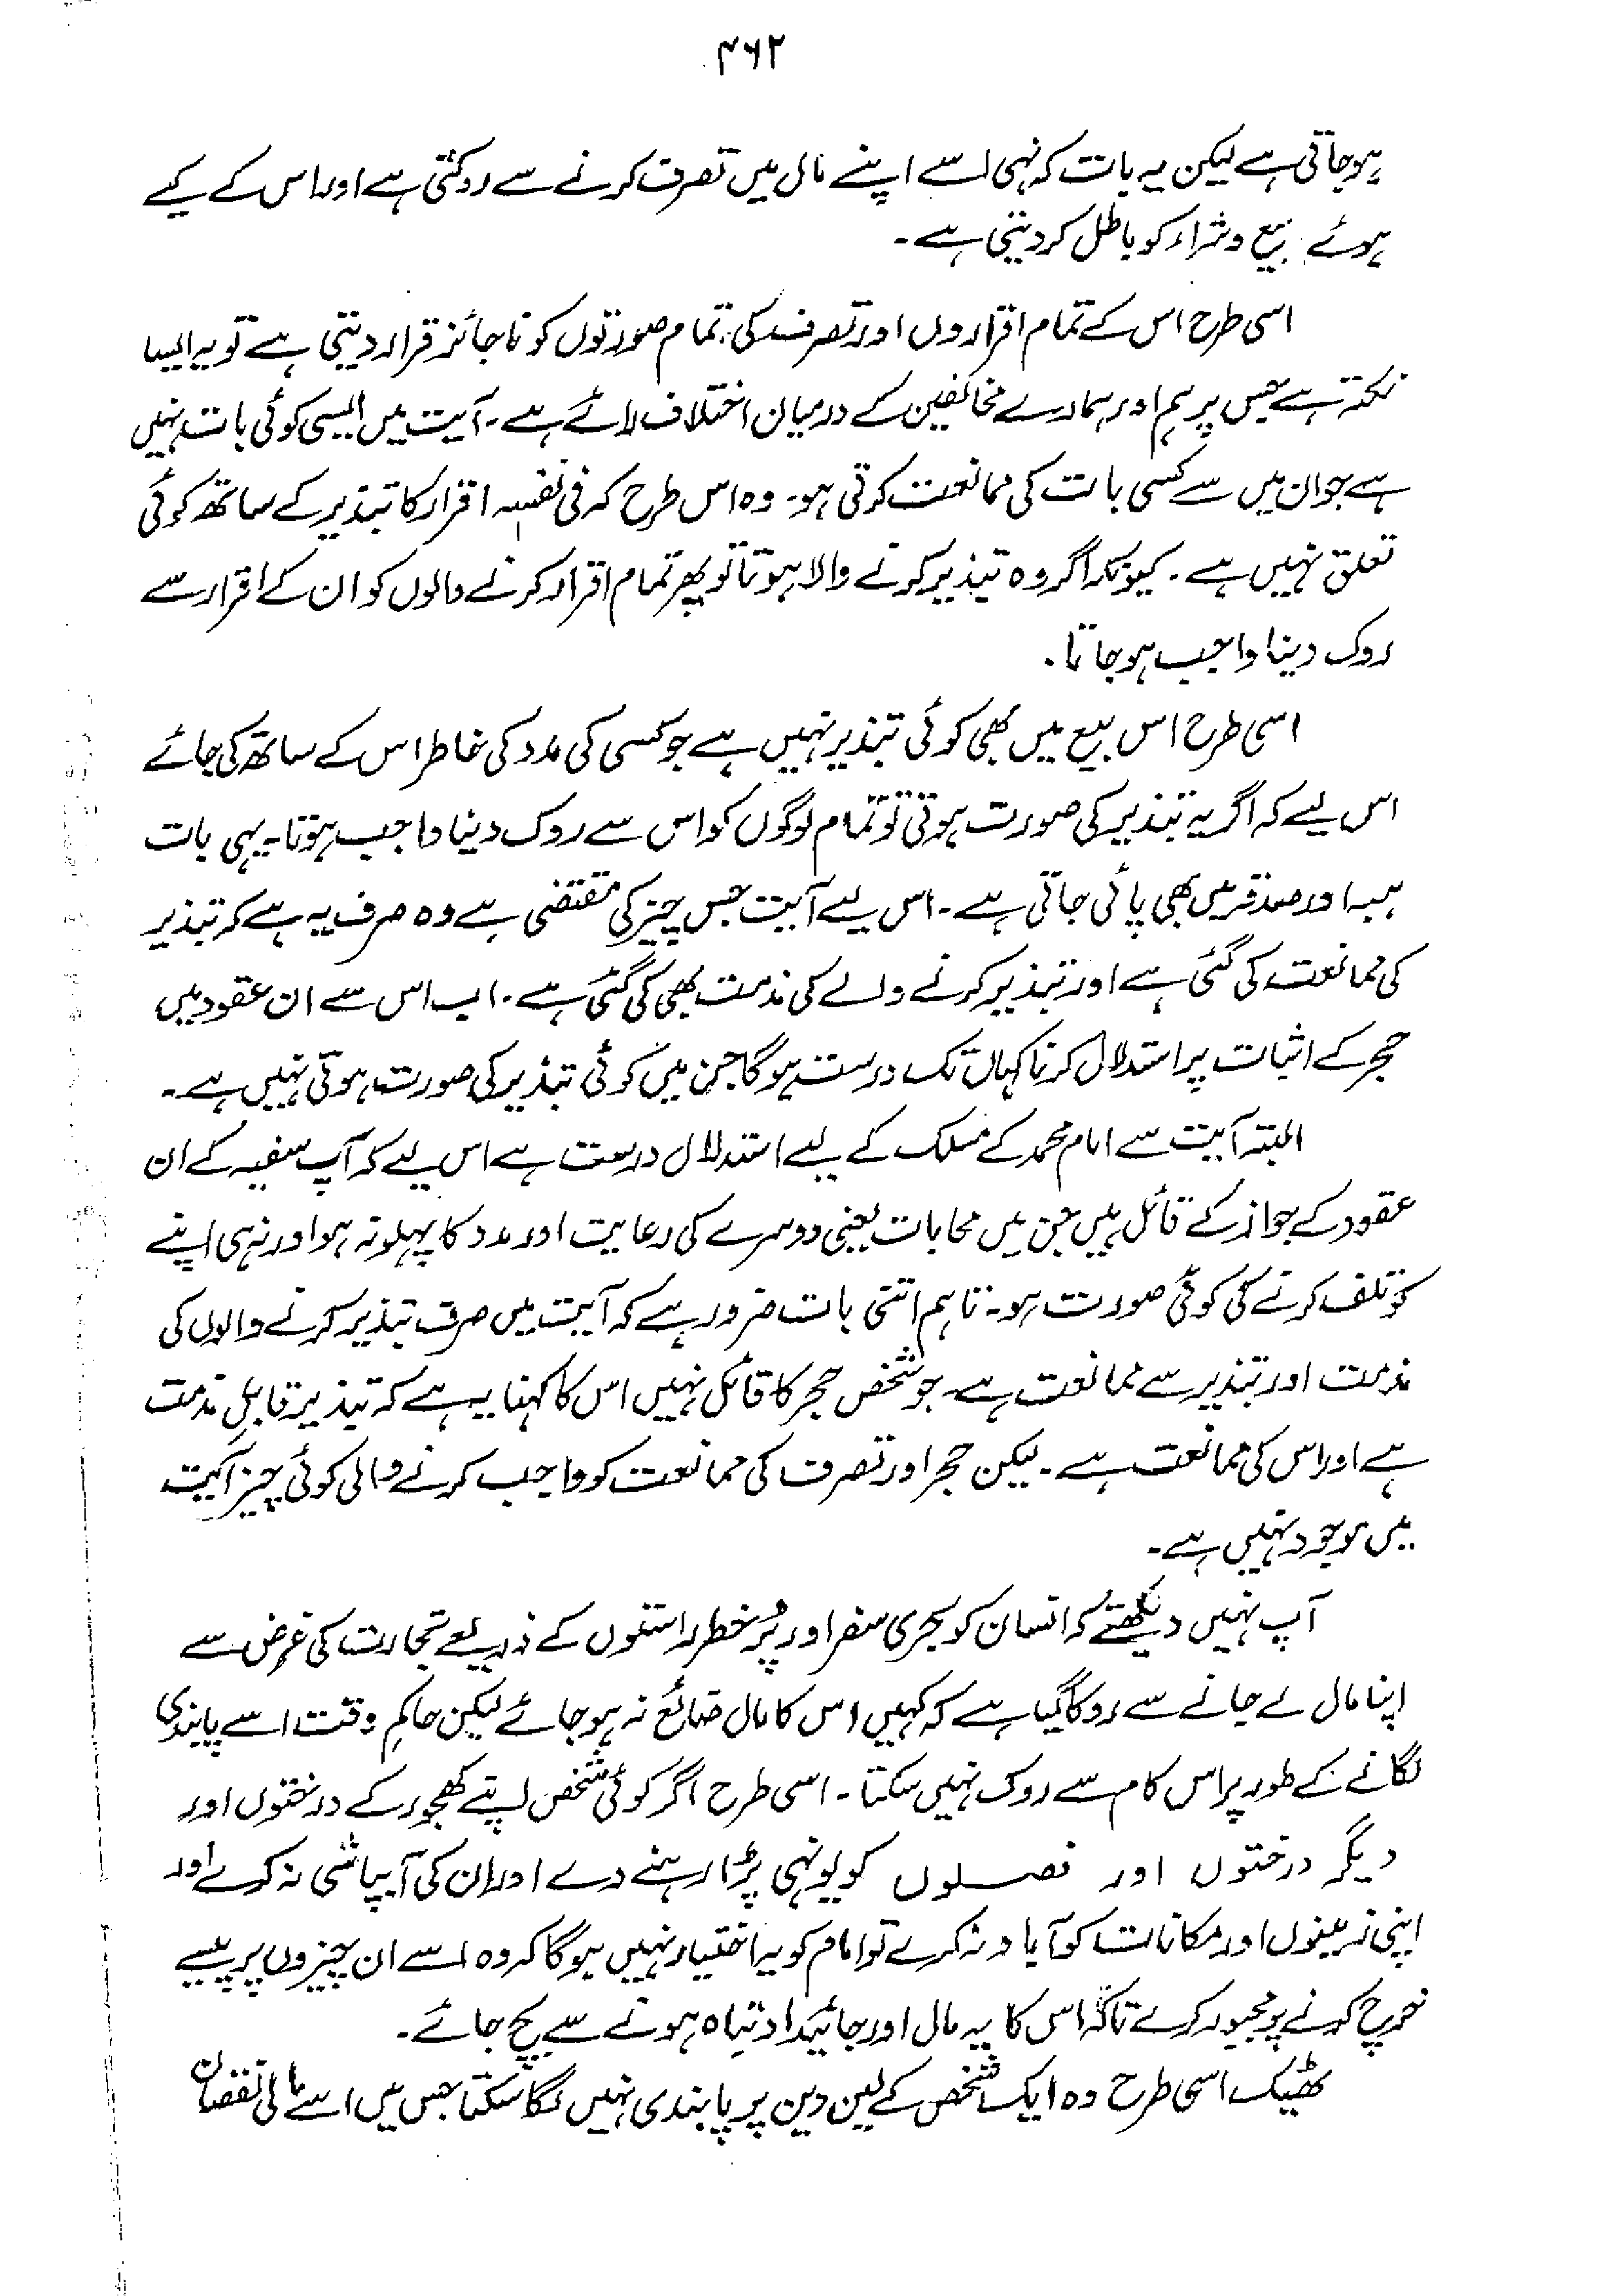 ۴۶۲
ہوجاتی ہے لیکن یہ بات کہ نہی اسے اپنے مال میں تصرف کرنے سے روکتی ہے اور اس کے کیے
ہوئے بیع و شراء کو باطل کردیتی ہے۔
اسی طرح اس کے تمام اقراروں اور تصرف کی تمام صورتوں کو ناجائز قرار دیتی ہے تو یہ ایسا
نکتہ ہے جس پر ہم اور ہمارے مخالفین کے درمیان اختلاف رائے ہے۔ آیت میں ایسی کوئی بات نہیں
ہے جو ان میں سے کسی بات کی ممانعت کرتی ہو۔ وہ اس طرح کہ فی نفسہ اقرار کا تبذیر کے ساتھ کوئی
تعلق نہیں ہے۔ کیونکہ اگر وہ تبذیر کرنے والا ہوتا تو پھر تمام اقرار کرنے والوں کو ان کے اقرار سے
روک دینا واجب ہوجاتا۔
اسی طرح اس بیع میں بھی کوئی تبذیر نہیں ہے جو کسی کی مدد کی خاطر اس کے ساتھ کی جائے
اس لیے کہ اگر یہ تبذیر کی صورت ہوتی تو تمام لوگوں کو اس سے روک دینا واجب ہوتا۔ یہی بات
ہبہ اور صدقہ میں بھی پائی جاتی ہے۔ اس لیے آیت جس چیز کی مقتضی ہے وہ صرف یہ ہے کہ تبذیر
کی ممانعت کی گئی ہے اور تبذیر کرنے والے کی مذمت بھی کی گئی ہے۔ اب اس سے ان عقود میں
حجر کے اثبات پر استدلال کرنا کہاں تک درست ہوگا جن میں کوئی تبذیر کی صورت ہوتی نہیں ہے۔
البتہ آیت سے امام محمد کے مسلک کے لیے استدلال درست ہے اس لیے کہ آپ سفیہ کے ان
عقود کے جواز کے قائل ہیں جن میں محابات یعنی دوسرے کی رعایت اور مدد کا پہلو نہ ہو اور نہ ہی اپنے
کو تلف کرنے کی کوئی صورت ہو۔ تاہم اتنی بات ضرور ہے کہ آیت میں صرف تبذیر کرنے والوں کی
مذمت اور تبذیر سے ممانعت ہے۔ جو شخص حجر کا قائل نہیں اس کا کہنا یہ ہے کہ تبذیر قابلِ مذمت
ہے اور اس کی ممانعت ہے۔ لیکن حجر اور تصرف کی ممانعت کو واجب کرنے والی کوئی چیز آیت
میں موجود نہیں ہے۔
آپ نہیں دیکھتے کہ انسان کو بحری سفر اور پُرخطر راستوں کے ذریعے تجارت کی غرض سے
اپنا مال لے جانے سے روکا گیا ہے کہ کہیں اس کا مال ضائع نہ ہوجائے لیکن حاکمِ وقت اسے پابندی
لگانے کے طور پر اس کام سے روک نہیں سکتا۔ اسی طرح اگر کوئی شخص اپنے کھجور کے درختوں اور
دیگر درختوں اور فصلوں کو یونہی پڑا رہنے دے اور ان کی آبپاشی نہ کرے اور
اپنی زمینوں اور مکانات کو آباد نہ کرے تو امام کو یہ اختیار نہیں ہوگا کہ وہ اسے ان چیزوں پر پیسے
خرچ کرنے پر مجبور کرے تاکہ اس کا یہ مال اور جائیداد تباہ ہونے سے بچ جائے۔
ٹھیک اسی طرح وہ ایک شخص کے لین دین پر پابندی نہیں لگا سکتا جس میں اسے مالی نقصان